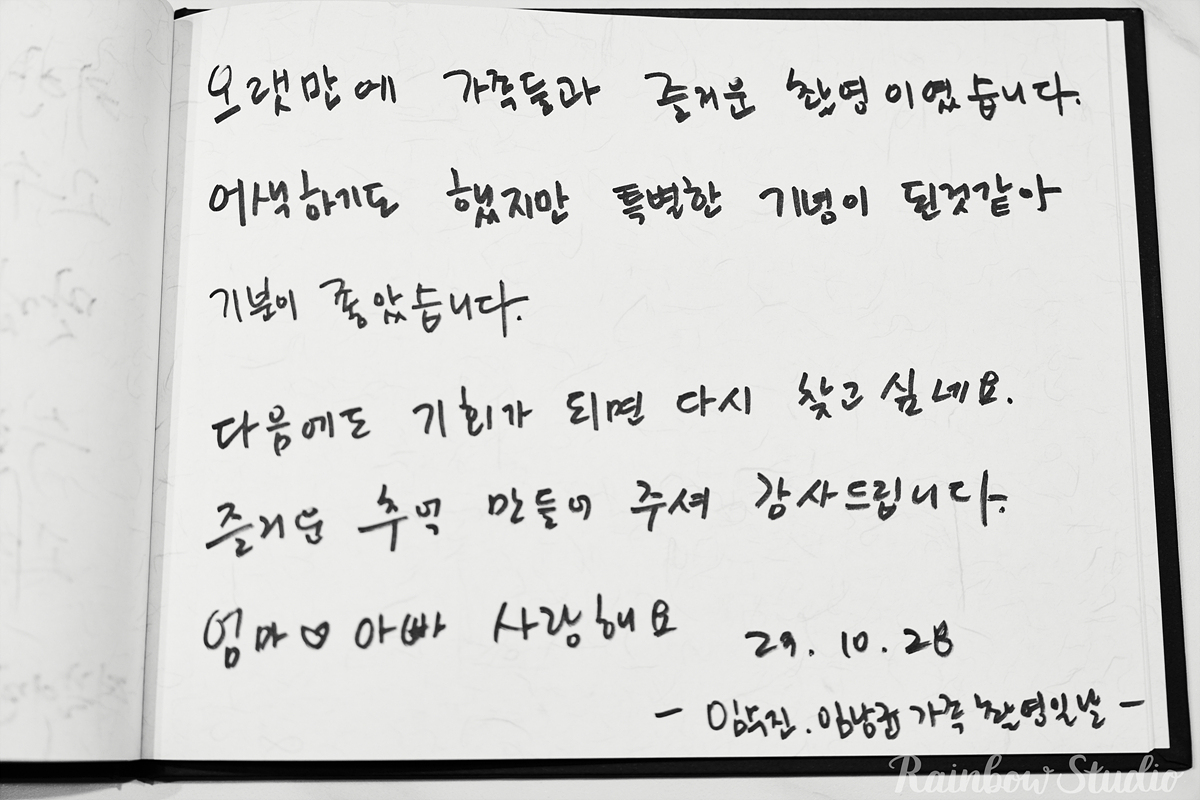 오랫만에 가족들과 즐거운 촬영이였습니다.
어색하기도 했지만 특별한 기념이 된것같아
기분이 좋았습니다.
다음에도 기회가 되면 다시 찾고싶네요.
즐거운 추억 만들어 주셔 감사드립니다.
엄마♡아빠 사랑해요
10.28
가족 촬영일날 -
Rainbow Studio